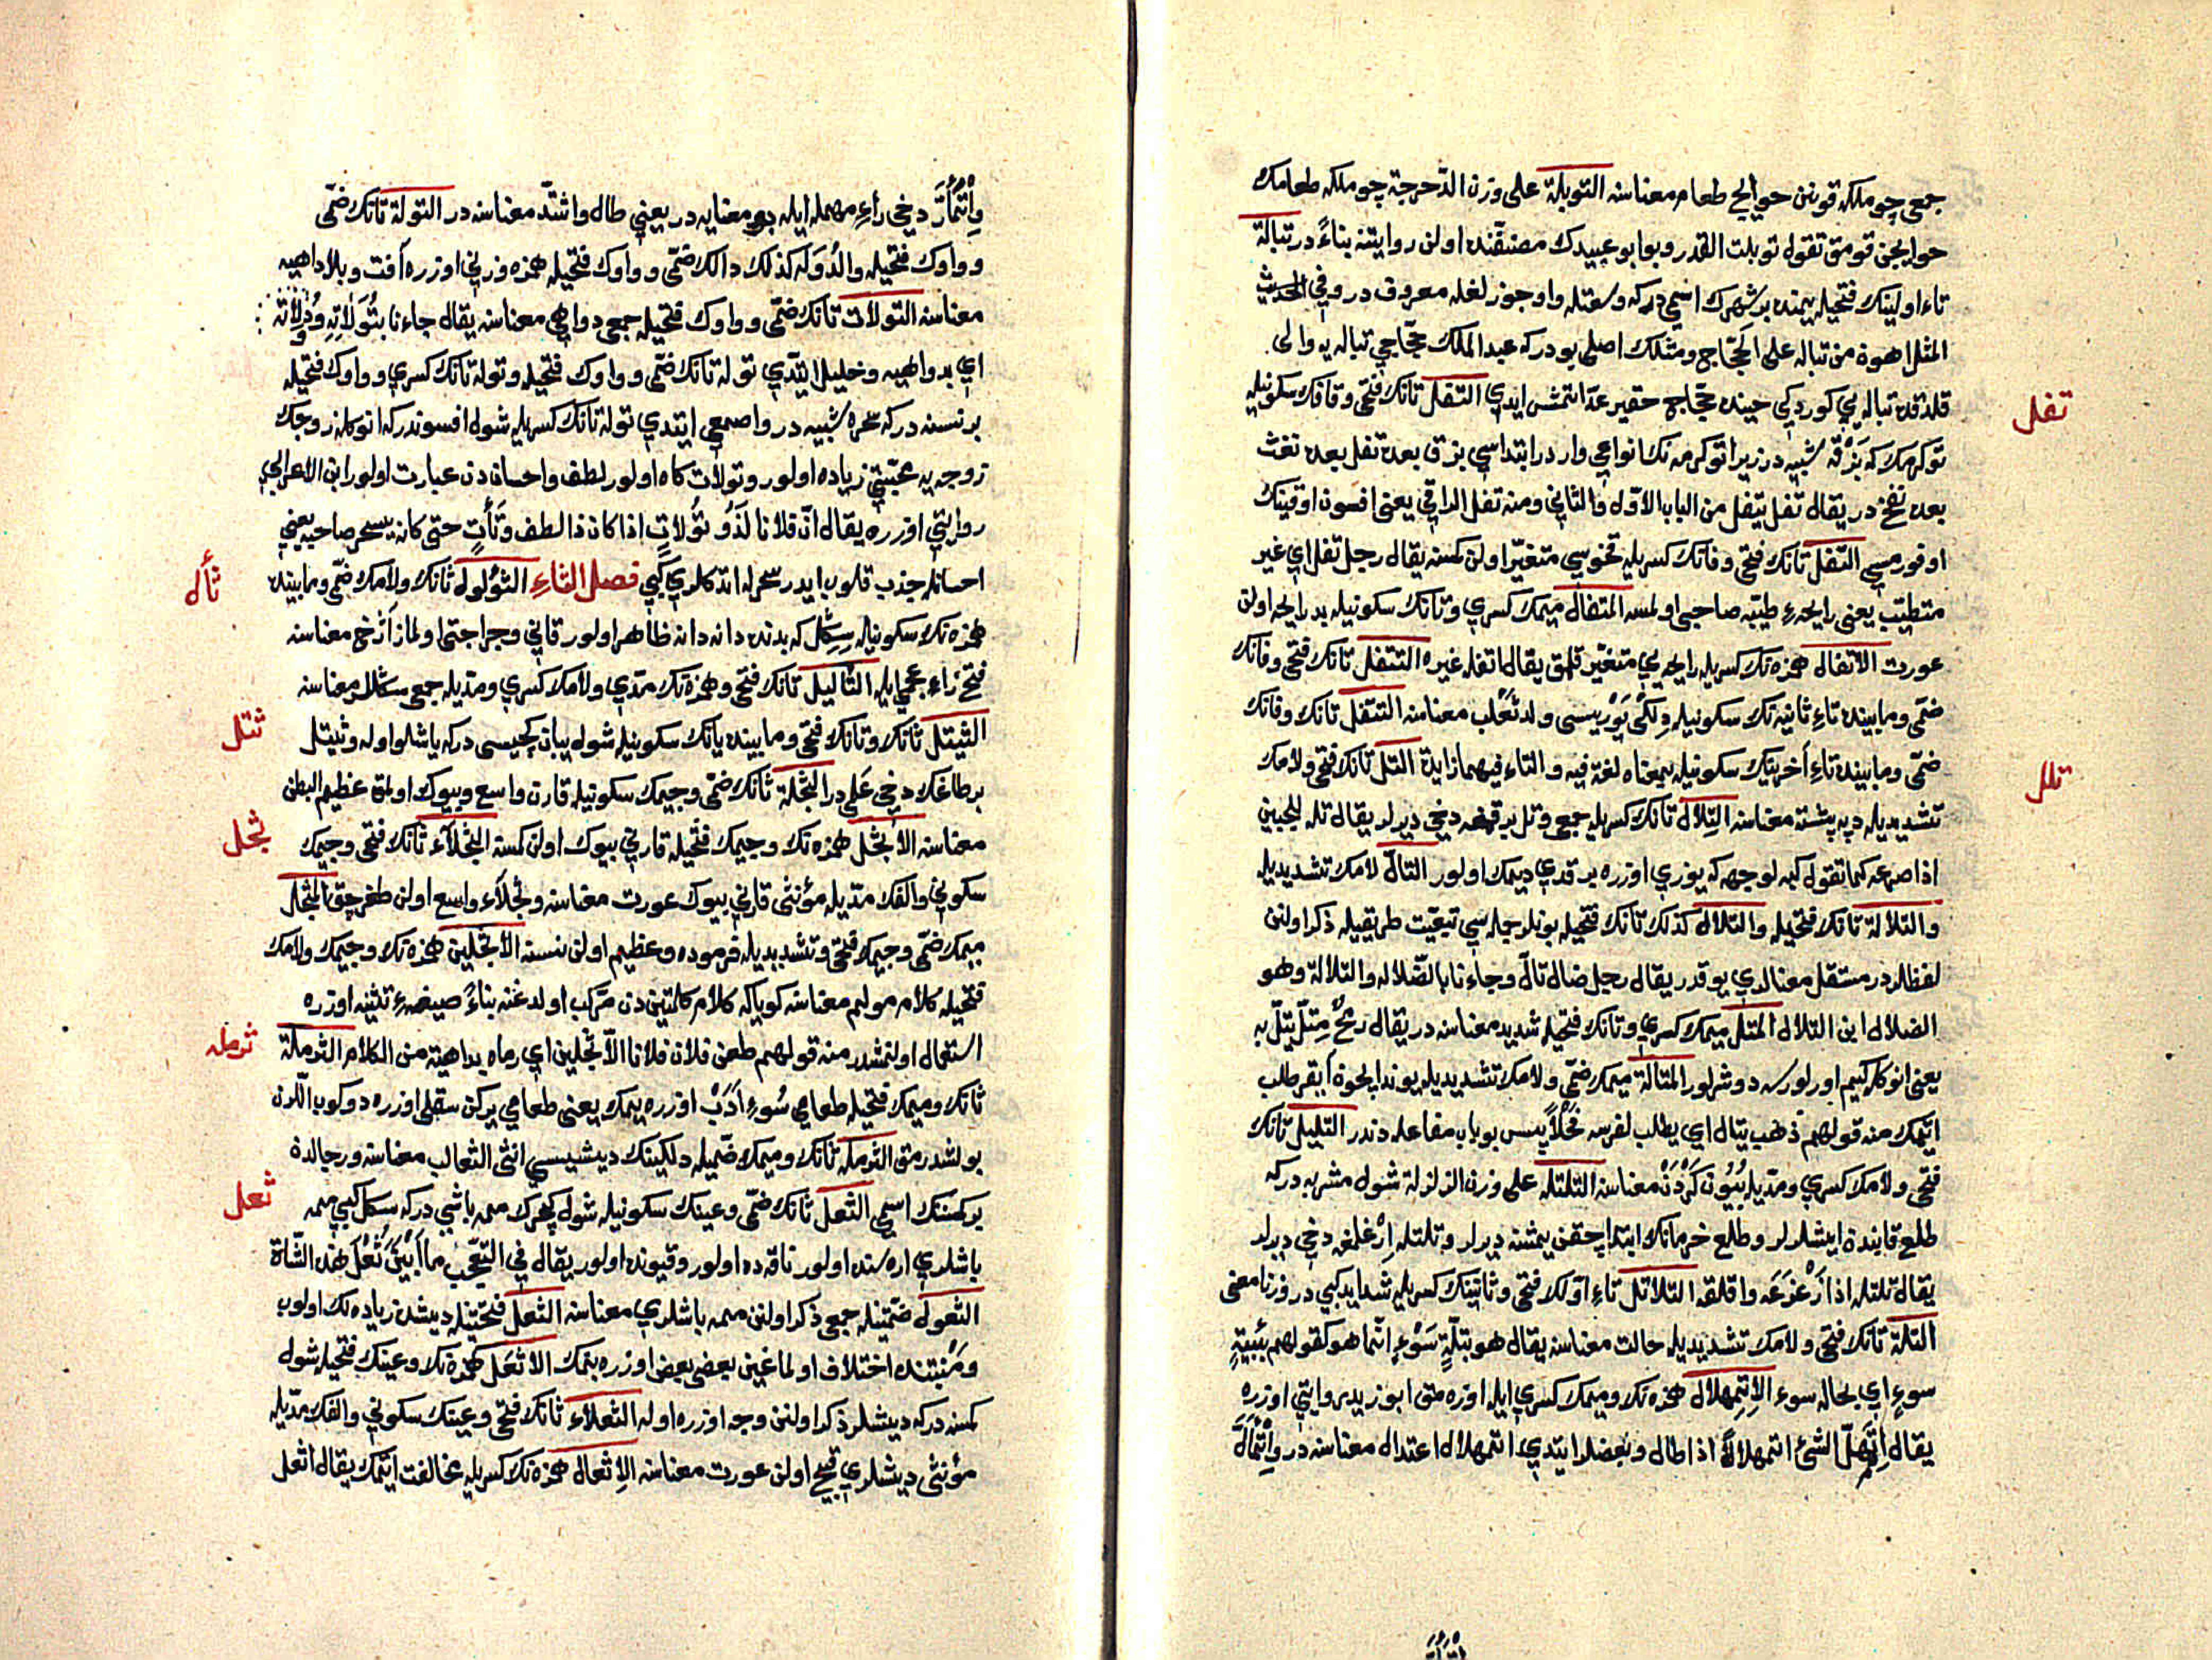 جمعى چوملكه قونن حوايج طعام معناسنه التوبلة على وزن الدّحرجة چوملكه طعامك
حوايجن قومق تقول توبلت القدر وبو ابو عبيدك مصنّفنده اولن روايتنه بناءً در تبالة
تاء اولينك فتحيله يمنده بر شهرك اسمى در كه وسعتله واوجوزلغله معروف در وفي الحديث
المثل اهون من تباله على الحجّاج ومثلك اصلى بو در كه عبد الملك حجّاجي تباله يه والى
قلدقده تباله يي كوردكي حينده حجّاج حقير عدّ اتمش ايدي التفل تانك فتحى وفانك سكونيله
توكرمك كه بزقه شبيه در زيرا توكرمه نك انواعى وارد ابتداسي بزق بعده تفل بعده نفث
بعده نفخ در يقال تفل يتفل من الباب الاوّل والثاني ومنه تفل الراقي يعنى افسون اوقينك
اوفورمسى التفل تانك فتحى وفانك كسريله قخوسي متغيّر اولن كمسنه يقال رجل تفل اي غير
متطيّب يعنى رايحهء طيّبه صاحبى اولمسه المتفال ميمك كسري وتانك سكونيله بد رايحه اولن
عورت الاتفال همزه نك كسريله رايحه يي متغيّر قلمق يقال اتفله غيره التتفل تانك فتحى وفانك
ضمّى ومابينده تاء ثانيه نك سكونيله دلكى يوريسى ولد ثعلب معناسنه التتفل تانك وفانك
ضمّى ومابينده تاء اخرينك سكونيله بمعناه لغة فيه والتاء فيهما زايدة التل تانك فتحى ولامك
تشديديله دپه پشته معناسنه التلال تانك كسريله جمعى وتل بر قومه دخي ديرلر يقال تله للجبين
اذا صرعه كما تقول كبه لوجهه كه يوزي اوزره يرقدي ديمك اولور التالّ لامك تشديديله
والتلالة تانك فتحيله والتلال كذلك تانك فتحيله بونلر جمله سي تبعيّت طريقيله ذكر اولنن
لفظلر در مستقل معنالري يوقدر يقال رجل ضال تالّ وجاءنا بالضّلاله والتلالة وهو
الضلال ابن التلال المتل ميمك كسري وتانك فتحيله شديد معناسنه در يقال رمحٌ مِتلّ يتلّ به
يعنى انوكله كيم اورلورسه دوشرلور المتالّة ميمك ضمّى ولامك تشديديله يوند ايجون ايغر طلب
ايتمك منه قولهم ذهب يتال اي يطلب لفرسه فحلاً پس بو باب مفاعله دندر التليل تانك
فتحى ولامك كسري ومدّيله بُيون كَرْدَن معناسنه التلتله على وزن الزلزلة شول مشربه در كه
طلع قابندن ايشلرلر وطلع خرمانك ابتدا چقن يمشنه ديرلر وتلتله ارغلمغه دخي ديرلر
يقال تلتله اذا زعزعه واقلقه التلاتل تاء اوّلك فتحى وثانينك كسريله شدايد كبي در وزنا معنى
التلة تانك فتحى ولامك تشديديله حالت معناسنه يقال هو بتلّةِ سَوْءٍ انّما هو كقولهم ببيئةٍ
سوءٍ اي بحال سوء الاِتمهلال همزه نك وميمك كسري ايله اوزه متى ابو زيد روايتي اوزره
يقال اِتمهلّ الشئ اتمهلالاً اذا طال وبعضلر ايتدي اتمهلال اعتدال معناسنه در واِتمأل
تفل
تلل
واِتمأرّ دخي راءِ مهمله ايله بو معنايه در يعني طال واشتدّ معناسنه در التولة تانك ضمّى
وواوك فتحيله والدُوَله كذلك دالك ضمّى وواوك فتحيله همزه وزني اوزره آفت وبلا داهيه
معناسنه التولات تانك ضمّى وواوك فتحيله جمعى دواهي معناسنه يقال جاءنا بتُوَلاتِهِ ودُولاتهِ
اي بدواهيه وخليل ايتدي توله تانك ضمّى وواوك فتحيله وتوله تانك كسري وواوك فتحيله
بر نسنه در كه سحره شبيه در واصمعى ايتدي توله تانك كسريله شول افسوندر كه انوكله زوجك
زوجه يه محبّتي زياده اولور وتولات كاه اولور لطف واحساندن عبارت اولور ابن الاعرابي
روايتي اوزره يقال انّ فلانا لَذُو تُوَلاتٍ اذا كان ذا لطف وتَأتٍ حتى كانه يسحر صاحبه يعني
احسانله جذب قلوب ايدر سحرله اتدكلري كبي فصل الثاءِ الثؤلول ثانك ولامك ضمّى ومابينده
همزه نك سكونيله سكل كه بدنده دانه دانه ظاهر اولور قاني وجراحتى اولماز اَژخ معناسنه
فتح زاءِ عجمي ايله الثآليل ثانك فتحى وهمزه نك مدّي ولامك كسري ومدّيله جمعى سكللر معناسنه
الثيتل ثانك وتانك فتحى ومابينده يانك سكونيله شول يبان كچيسى در كه ياشلو اوله وثيتل
بر طاغك دخي عَلَمى در الثجلة ثانك ضمّى وجيمك سكونيله قارن واسع وبيوك اولمق عظيم البطن
معناسنه الاثجل همزه نك وجيمك فتحيله قارني بيوك اولن كمسنه الثجلآء ثانك فتحى وجيمك
سكوني والفك مدّيله مؤنثى قارني بيوك عورت معناسنه وثجلآء واسع اولن طغرجق المثجّل
ميمك ضمّى وجيمك فتحى وتشديديله فرموده وعظيم اولن نسنه الاثجلين همزه نك وجيمك ولامك
فتحيله كلام مولم معناسنه كويا كه كلام كلمتين دن مركب اولدغنه بناءً صيغهءِ تثنيه اوزره
استعمال اولنمشدر منه قولهم طعن فلان فلانا الأثجلين اي رماه بداهية من الكلام الثرملة
ثانك وميمك فتحيله طعامى سُوءِ اَدَبْ اوزره يمك يعنى طعامى يركن سقلى اوزره دوكوب اللرن
بولشدرمق الثرمله ثانك وميمك ضمّيله دلكينك ديشيسي انثى الثعالب معناسنه ورجالدن
بر كمسنك اسمى الثعل ثانك ضمّى وعينك سكونيله شول كچرك ممه باشي در كه سكل كبي ممه
باشلري اره سنده اولور ناقه ده اولور وقيونده اولور يقال في التعّجب ما اَبْيَنَ ثُعْلَ هذه الشّاة
الثعول ضمّتيله جمعى ذكر اولنن ممه باشلري معناسنه الثعل فتحتيله ديشدن زياده لك اولوب
ومَنبتنده اختلاف اولماغين بعضى بعض اوزره بتمك الاثعل همزه نك وعينك فتحيله شول
كمسنه در كه ديشلر ذكر اولنن وجه اوزره اوله الثعلاء ثانك فتحى وعينك سكوني والفك مدّيله
مؤنثى ديشلري قبيح اولن عورت معناسنه الاِثعال همزه نك كسريله مخالفت ايتمك يقال اثعل
ثأل
ثتل
ثجل
ثرمله
ثعل